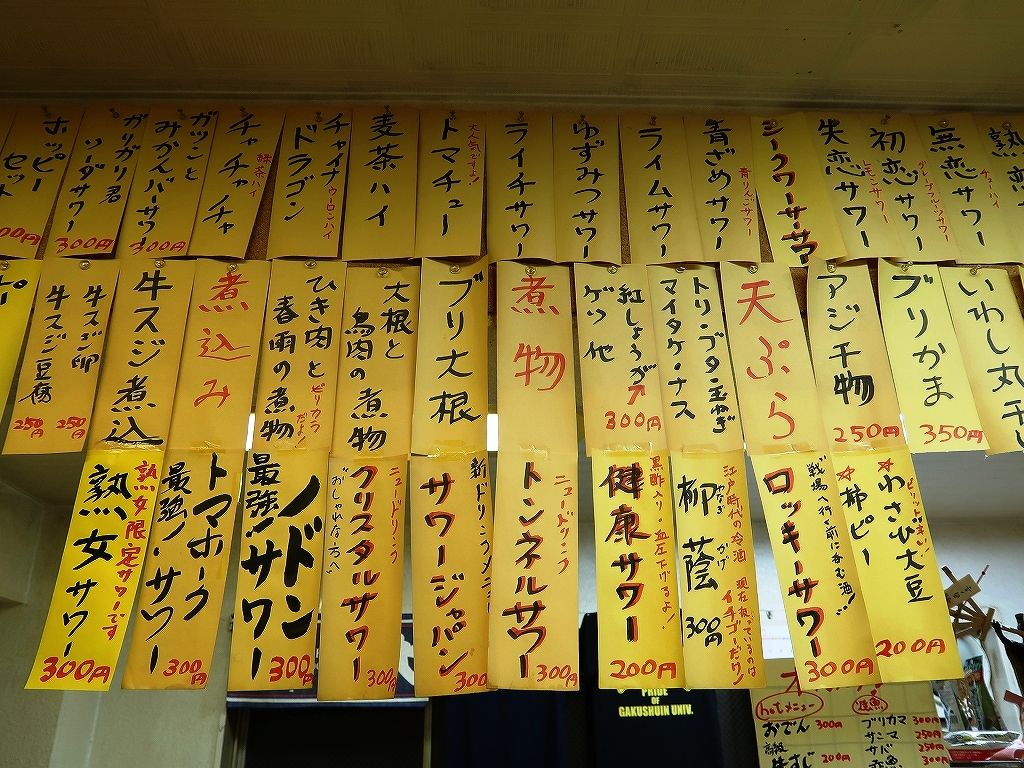 ホッピー
セット
ガリガリ君
ソーダサワー
300円
ガツンと
みかんバーサワー
300円
チャチャチャ
緑茶ハイ
チャイナ
ドラゴン
ウーロンハイ
麦茶ハイ
大人気ですよ!
トマチュー
ライチサワー
ゆずみつサワー
ライムサワー
青ざめサワー
青りんごサワー
シークワーサーサワー
失恋サワー
初恋サワー
レモンサワー
無恋サワー
グレープフルーツサワー
チューハイ
牛スジ卵
250円
牛スジ豆腐
250円
牛スジ煮込
煮込み
ひき肉と
春雨の煮物
ピリカラだよ!
大根と
鳥肉の煮物
ブリ大根
煮物
紅しょうが
ゲソ他
300円
トリ・ブタ・玉ねぎ
マイタケ・ナス
天ぷら
アジ干物
250円
ブリかま
350円
いわし丸干
熟女限定サワーです
熟女サワー
300円
トマホーク
最強!サワー
300円
ノドン
最強!サワー
300円
ニュードリンク
クリスタルサワー
おしゃれな方へ
300円
新ドリンクメニュー
サワージャパン
300円
ニュードリンク
トンネルサワー
300円
黒酢入り・血圧下げるよ!
健康サワー
200円
江戸時代の冷酒 現在扱っているのは
イチゴーだけ!
柳蔭
やなぎ かげ
300円
戦場へ行く前に呑む酒!!
ロッキーサワー
300円
☆わさび大豆
☆柿ピー
200円
PRIDE
OF
GAKUSHUIN UNIV.
hotメニュー
おでん 300円
高級
牛すじ 200円
焼魚
ブリカマ 300円
サンマ 250円
サバ 250円